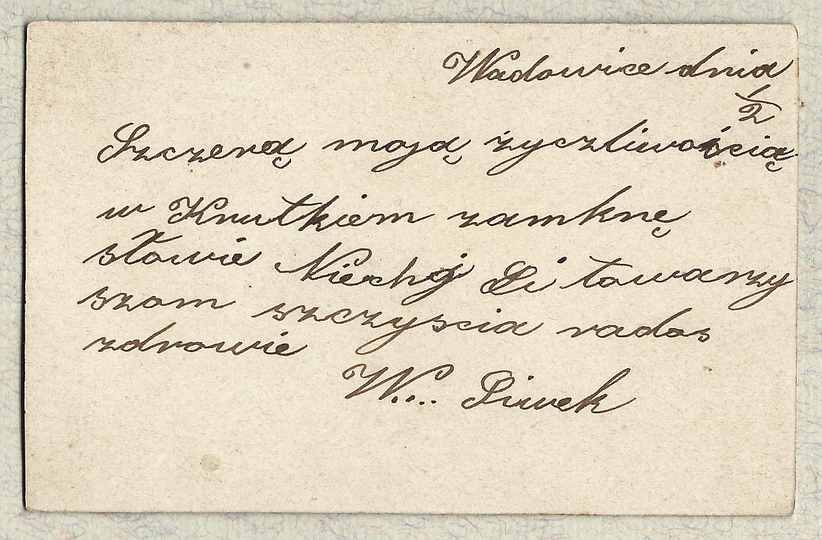 Wadowice dnia
1/2
Szczerą moją życzliwością
w Knutkiem zamknę
słowie Niechaj Ci towarzy
szom szczyscia rados
zdrowie
W.... Siwek